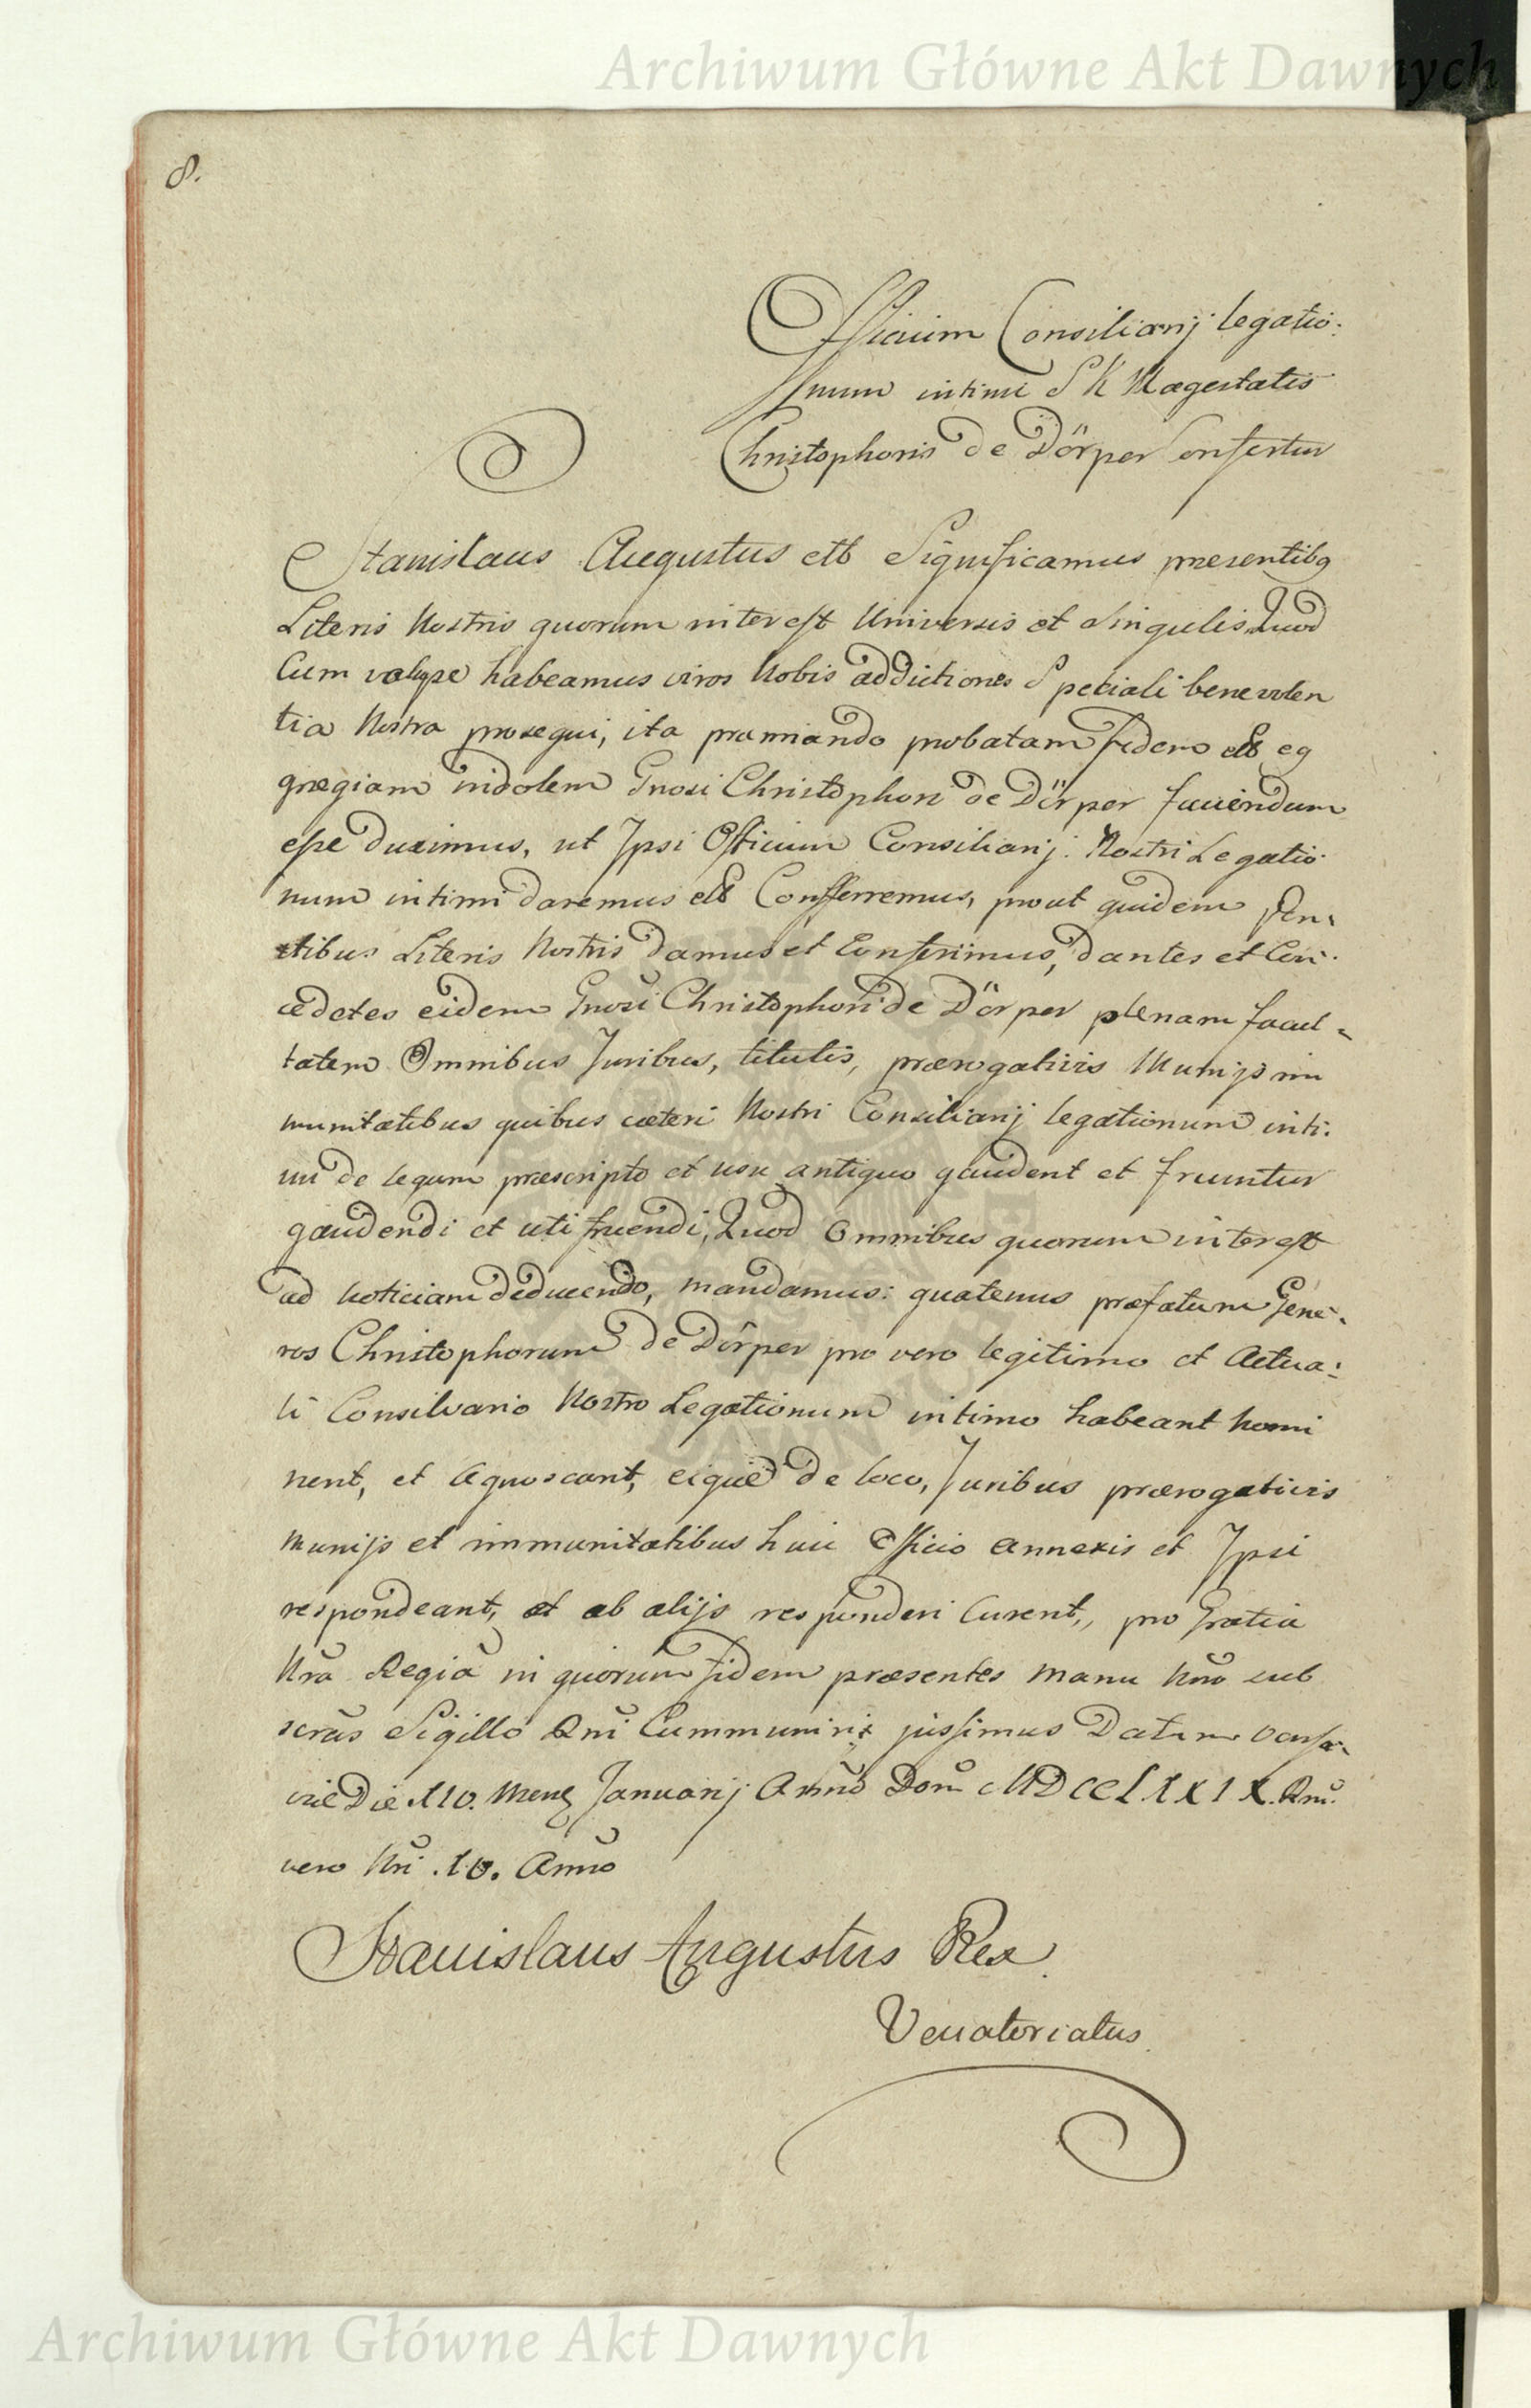 Archiwum Główne Akt Dawnych
8.
Officium Consiliarij legatio:
num intimi S R Maegestatis
Christophoris de Dörper Confertur
Stanislaus Augustus etb Significamus presentibq
Literis Nostris quorum interest Universis et Singulis, Quod
Cum volupe habeamus viros Nobis addictiones Speciali benevolen
tia Nostra prosequi, ita praemiando probatam fidem etb eg
gregiam indolem Gnosi Christophori de Dörper faciendum
esse duximus, ut Ipsi Officium Consiliarij Nostri Legatio
num intimi daremus etb Conferremus, prout quidem
tibus Literis Nostris damus et Conferimus, dantes et Con:
cedetes eidem Gnosi Christophori de Dörper plenam facul
tatem Omnibus Juribus, titulis, praerogativis Munijs im
munitatibus quibus caeteri Nostri Consiliarij legationum inti:
mi de legum praescripto et usu antiquo gaudent et fruuntur
gaudendi et uti fruendi, Quod Omnibus quorum interest
ad noticiam deducendo, mandamus: quatenus praefatum Gene:
ros Christophorum de Dörper pro vero legitimo et Actua:
li Consilvario Nostro Legationum intimo habeant nomi
nent, et Agnoscant, eique de loco, Juribus praerogativis
munijs et immunitatibus huic Officio annexis et Ipsi
respondeant, et ab alijs responderi Curent, pro Gratia
Nra Regia in quorum fidem praesentes manu Nra sub
scras Sigillo Rni Cummuniri jussimus Datum Varsa
vie Die 10. Mens Januarij Anno Dom MDCCLXXIX. Rni
vero Nri .10. Anno
Stanislaus Augustus Rex
Venatoriatus
Archiwum Główne Akt Dawnych